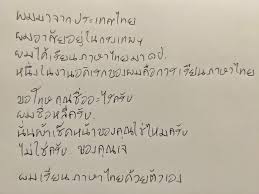 ผมมาจากประเทศไทย
ผมอาศัยอยู่ในกรุงเทพฯ
ผมได้เรียนภาษาไทยมา
หนึ่งในงานอดิเรกของผมคือการเรียนภาษาไทย
ขอโทษคุณชื่ออะไรครับ
ผมชื่อหลีครับ
นั่นผ้าเช็ดหน้าของคุณใช่ไหมครับ
ไม่ใช่ครับ ของคุณเจ
ผมเรียนภาษาไทยด้วยตัวเอง